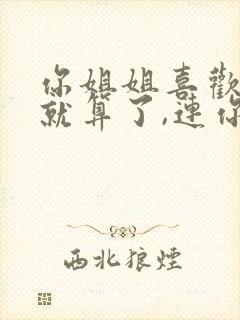 你姐姐喜歡
就算了,連你
西北狼煙